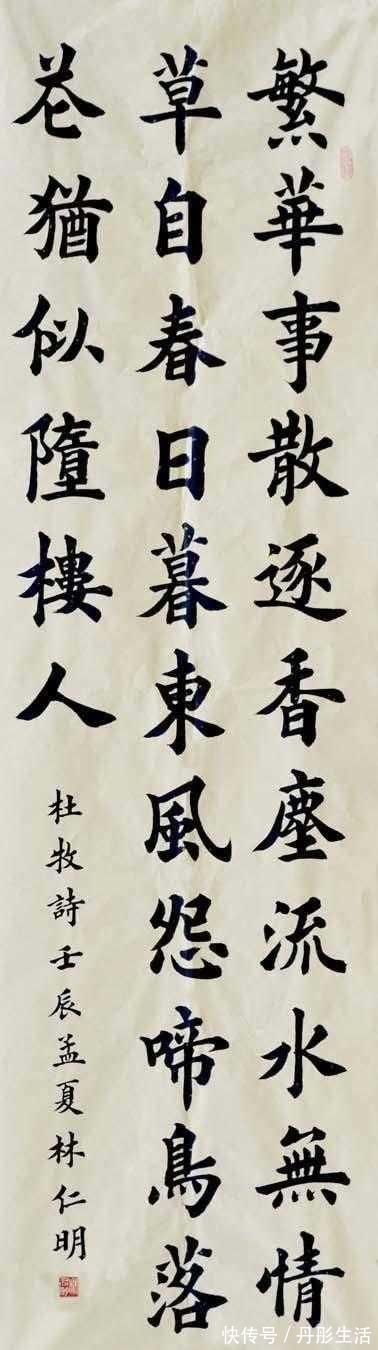 繁華事散逐香塵流水無情
草自春日暮東風怨啼鳥落
花猶似墮樓人
杜牧詩壬辰孟夏林仁明
快传号/丹彤生活